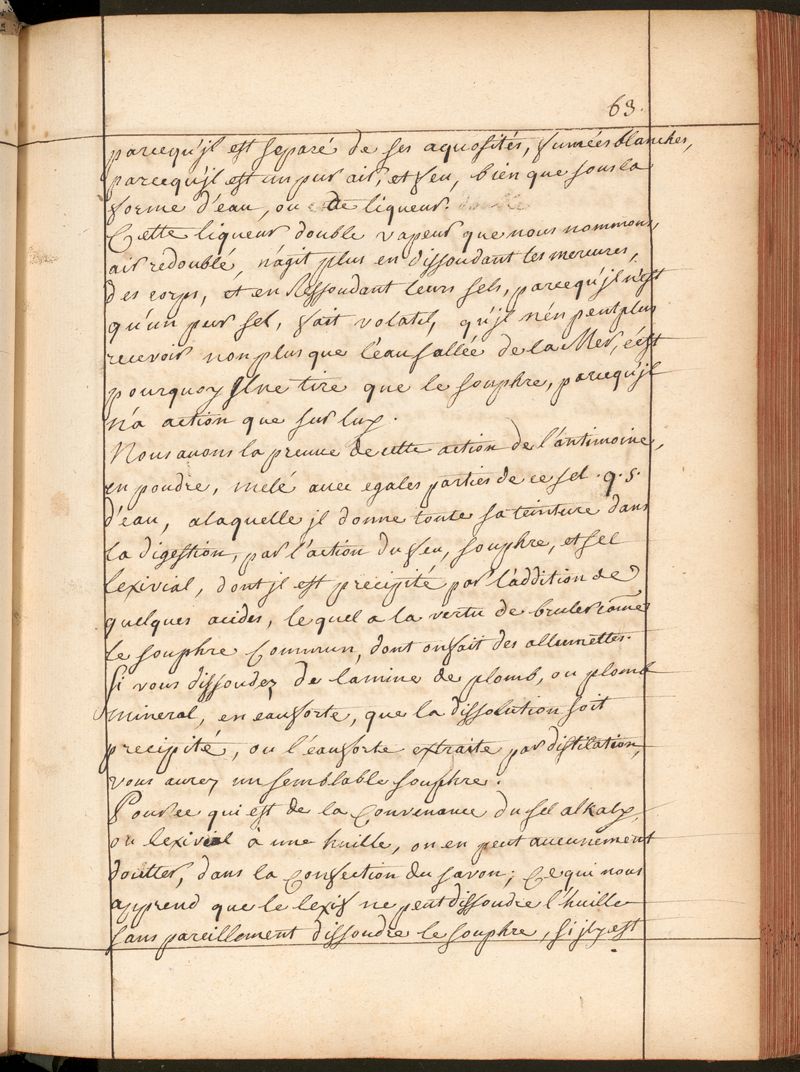 63.
parcequ'jl est separé de ses aquosités, fumées blanches,
parcequ'jl est un pur air, et feu, bien que sous la
forme d'eau, ou de liqueur.
Cette liqueur double vapeur que nous nommons,
air redoublé, n'agit plus en dissoudant les mercures,
des corps, et en Ressoudant leurs sels, parcequ'jl n'est
qu'un pur sel, fait volatil, qu'jl n'en peut plus
recevoir non plus que l'eau sallée de la Mer, c'est
pourquoy Il ne tire que le souphre, parcequ'jl
n'a action que sur luy.
Nous auons la preuue de cette action de l'antimoine,
en poudre, melé auec egales parties de ce sel . q. s.
d'eau, a laquelle jl donne toute sa teinture dans
la digestion, par l'action du feu, souphre, et sel
lexivial, dont jl est precipité par l'addition de
quelques acides, le quel a la vertu de bruler com̃e
le souphre Commun, dont on fait des allumettes.
Si vous dissoudez de la mine de plomb, ou plomb
mineral, en eau forte, que la dissolution soit
precipité, ou l'eau forte extraite par distilation,
vous aurez un semblable souphre.
Pour ce qui est de la Convenance du sel alkaly,
ou lexivial à une huille, on en peut aucunement
doutter, dans la Confection du savon; Ce qui nous
apprend que le lexif ne peut dissoudre l'huille
sans pareillement dissoudre le souphre, si jl y est